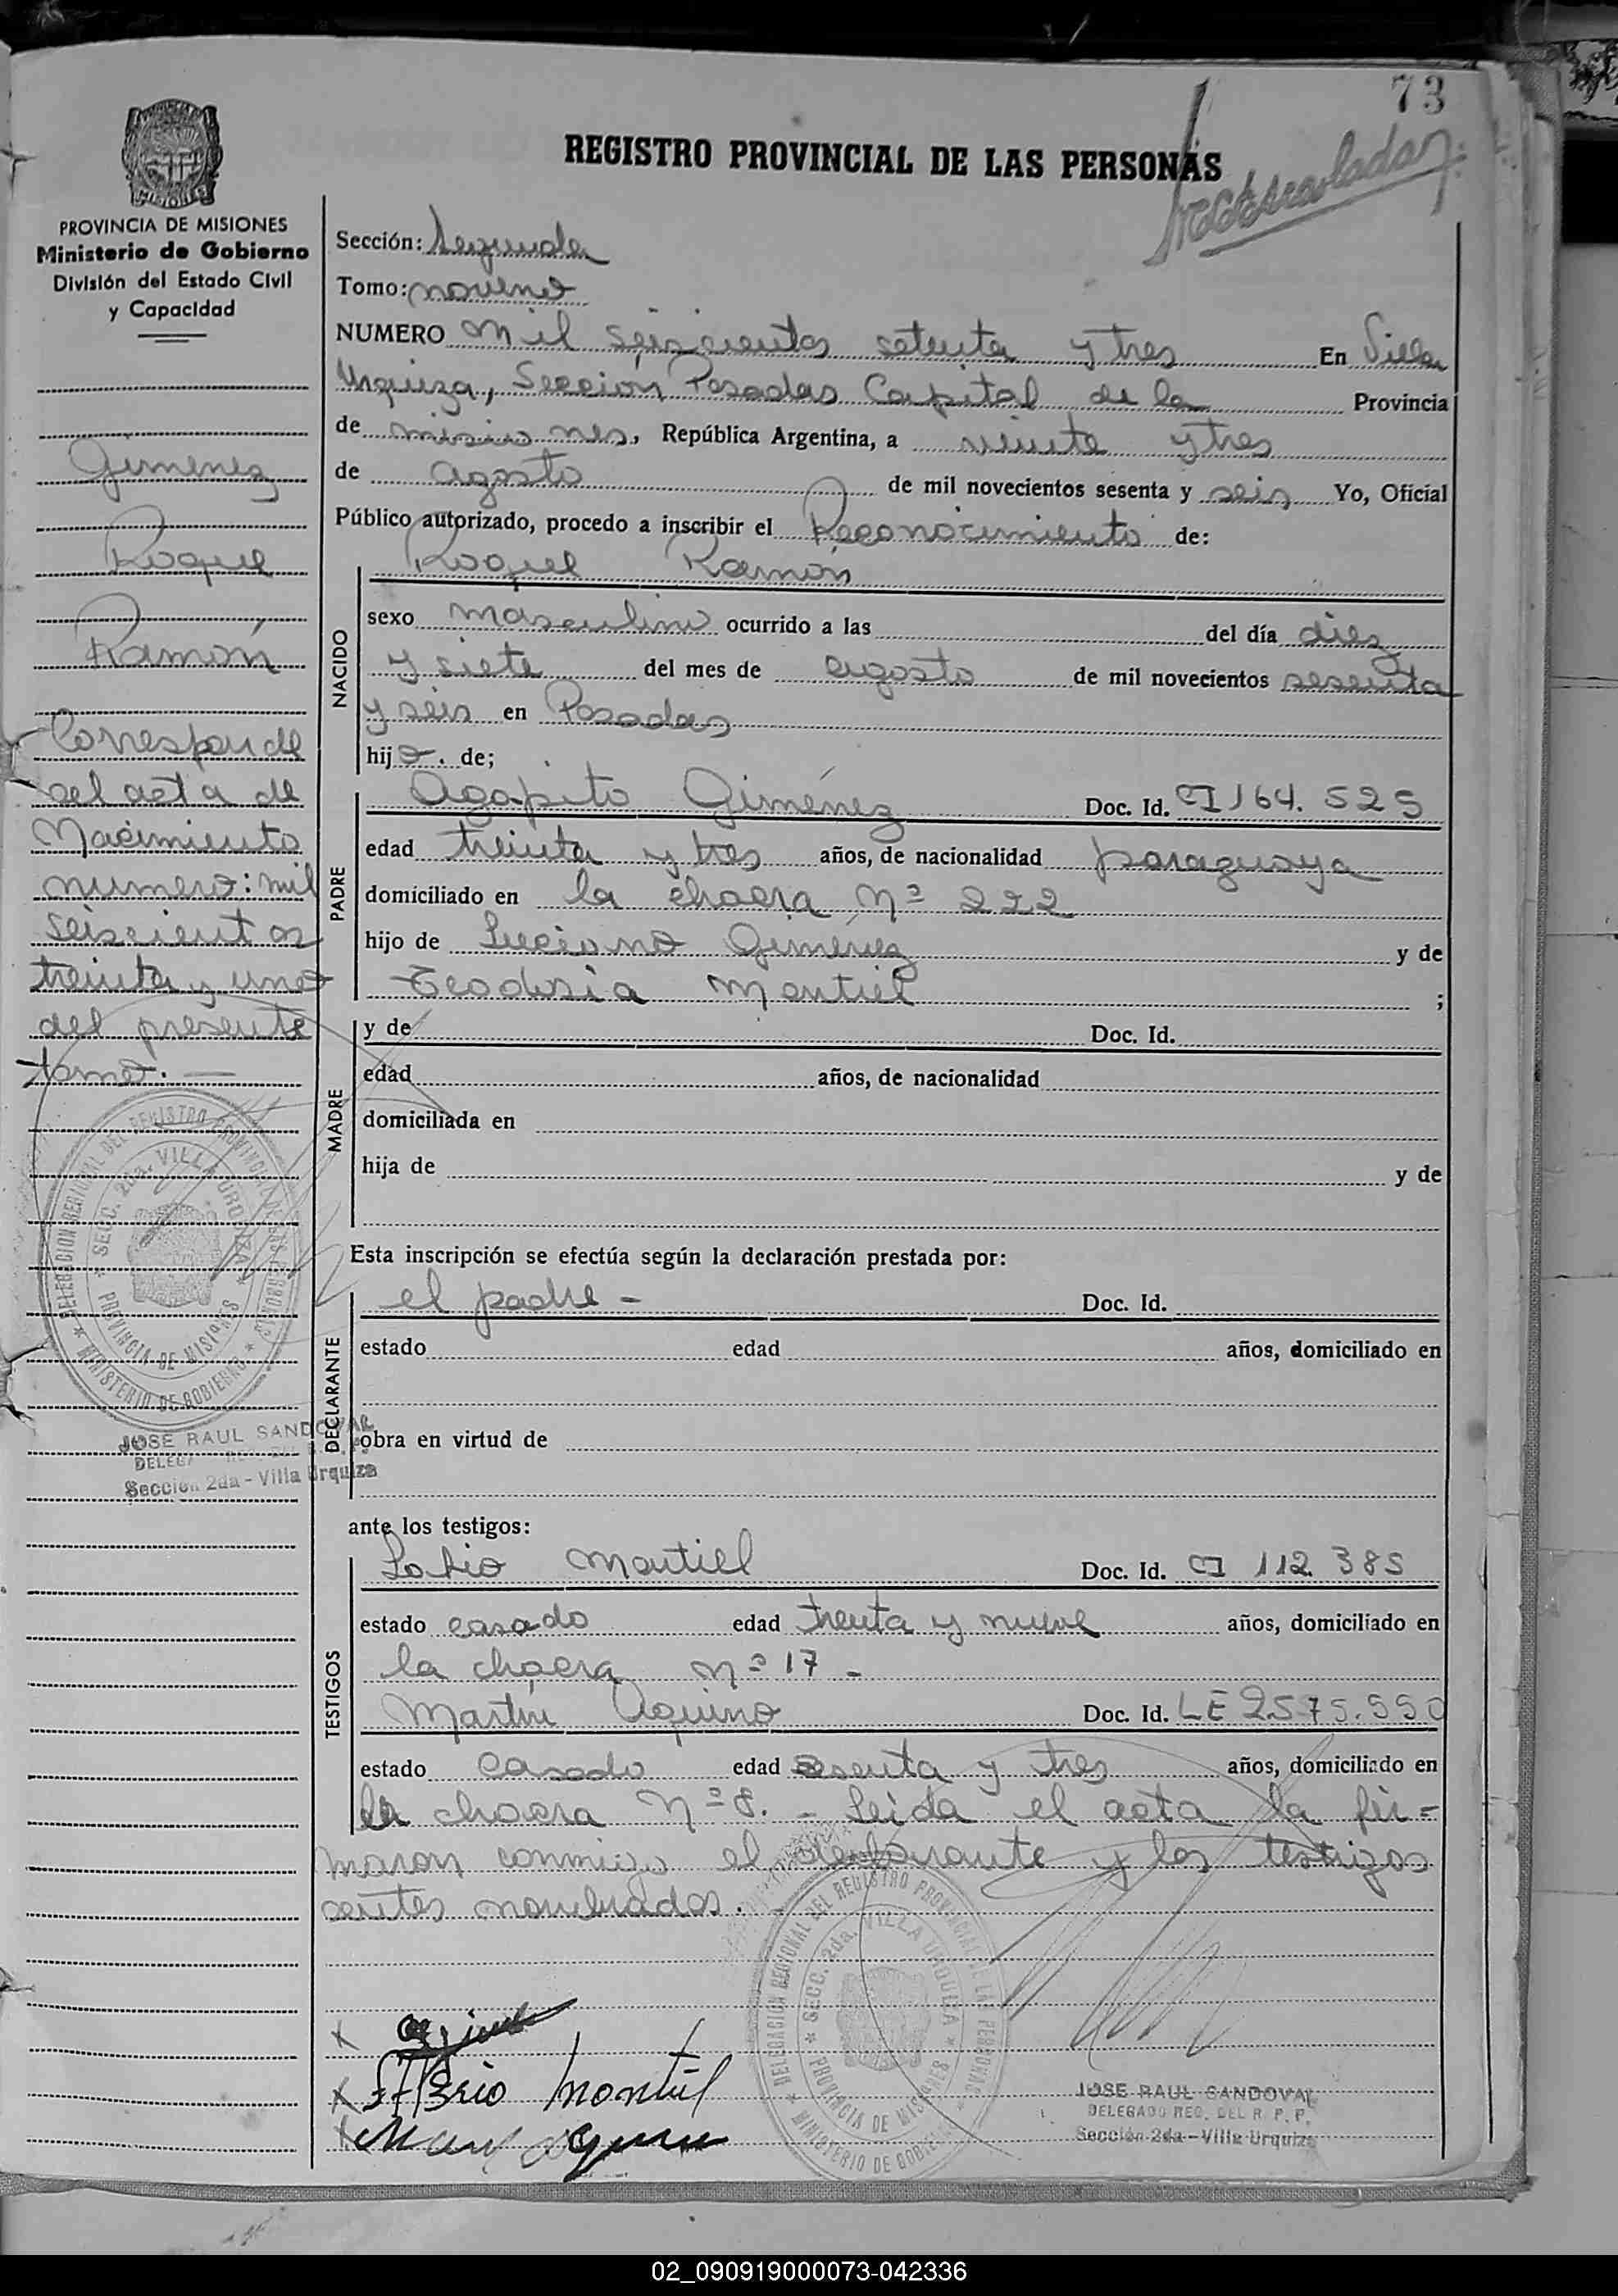 73
REGISTRO PROVINCIAL DE LAS PERSONAS
PROVINCIA DE MISIONES
Ministerio de Gobierno
División del Estado Civil
y Capacidad
Gimenez
Roque
Ramón
Corresponde
al acta de
Nacimiento
numero: mil
seiscientos
treinta y uno
del presente
tomo. —
JOSE RAUL SANDOVAR
Sección 2da - Villa Urquiza
Sección: Segunda
Tomo: noveno
NUMERO mil seiscientos setenta y tres En Villa
Urquiza, Sección Posadas Capital de la Provincia
de misiones, República Argentina, a veinte y tres
de agosto de mil novecientos sesenta y seis Yo, Oficial
Público autorizado, procedo a inscribir el Reconocimiento de:
Roque Ramon
NACIDO
sexo masculino ocurrido a las del día diez
y siete del mes de agosto de mil novecientos sesenta
y seis en Posadas
hijo. de;
PADRE
Agapito Giménez Doc. Id. CI 164. 525
edad treinta y tres años, de nacionalidad paraguaya
domiciliado en la chacra Nº 222
hijo de Luciano Giménez y de
Teodosia Montiel ;
MADRE
y de Doc. Id.
edad años, de nacionalidad
domiciliada en
hija de y de
Esta inscripción se efectúa según la declaración prestada por:
DECLARANTE
el padre - Doc. Id.
estado edad años, domiciliado en
obra en virtud de
ante los testigos:
TESTIGOS
Montiel Doc. Id. CI 112. 385
estado casado edad treinta y nueve años, domiciliado en
la chacra nº 17 -
Martin Aquino Doc. Id. LE 2.575.550
estado casado edad sesenta y tres años, domiciliado en
la chacra Nº 8. - Leida el acta la fir=
maron conmigo el declarante y los testigos
antes nombrados.
DELEGACION REGIONAL DEL REGISTRO PROVINCIAL DE LAS PERSONAS
SECC. 2da. VILLA URQUIZA
PROVINCIA DE MISIONES
MINISTERIO DE GOBIERNO
JOSE RAUL SANDOVAL
DELEGADO REG. DEL R. P. P.
Sección 2da - Villa Urquiza
02_090919000073-042336